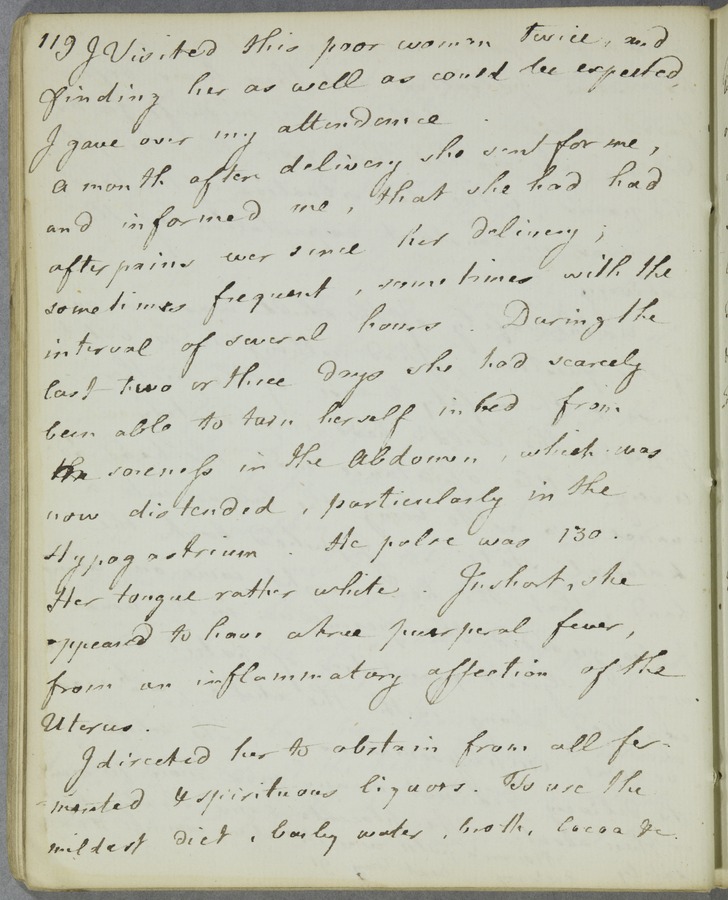 119 I Visited this poor woman twice, and
finding her as well as could be expected,
I gave over my attendance.
A month after delivery she sent for me,
and informed me, that she had had
after pains ever since her delivery;
sometimes frequent, sometimes with the
interval of several hours. During the
last two or three days she had scarcely
been able to turn herself in bed from
the soreness in the Abdomen, which was
now distended, particularly in the
Hypogastrium. He pulse was 130.
Her tongue rather white. In short, she
appeared to have a true puerperal fever,
from an inflammatory affection of the
Uterus. —
I directed her to abstain from all fer-
mented & spirituous liquors. To use the
mildest diet, barley water, broth, Cocoa &c.